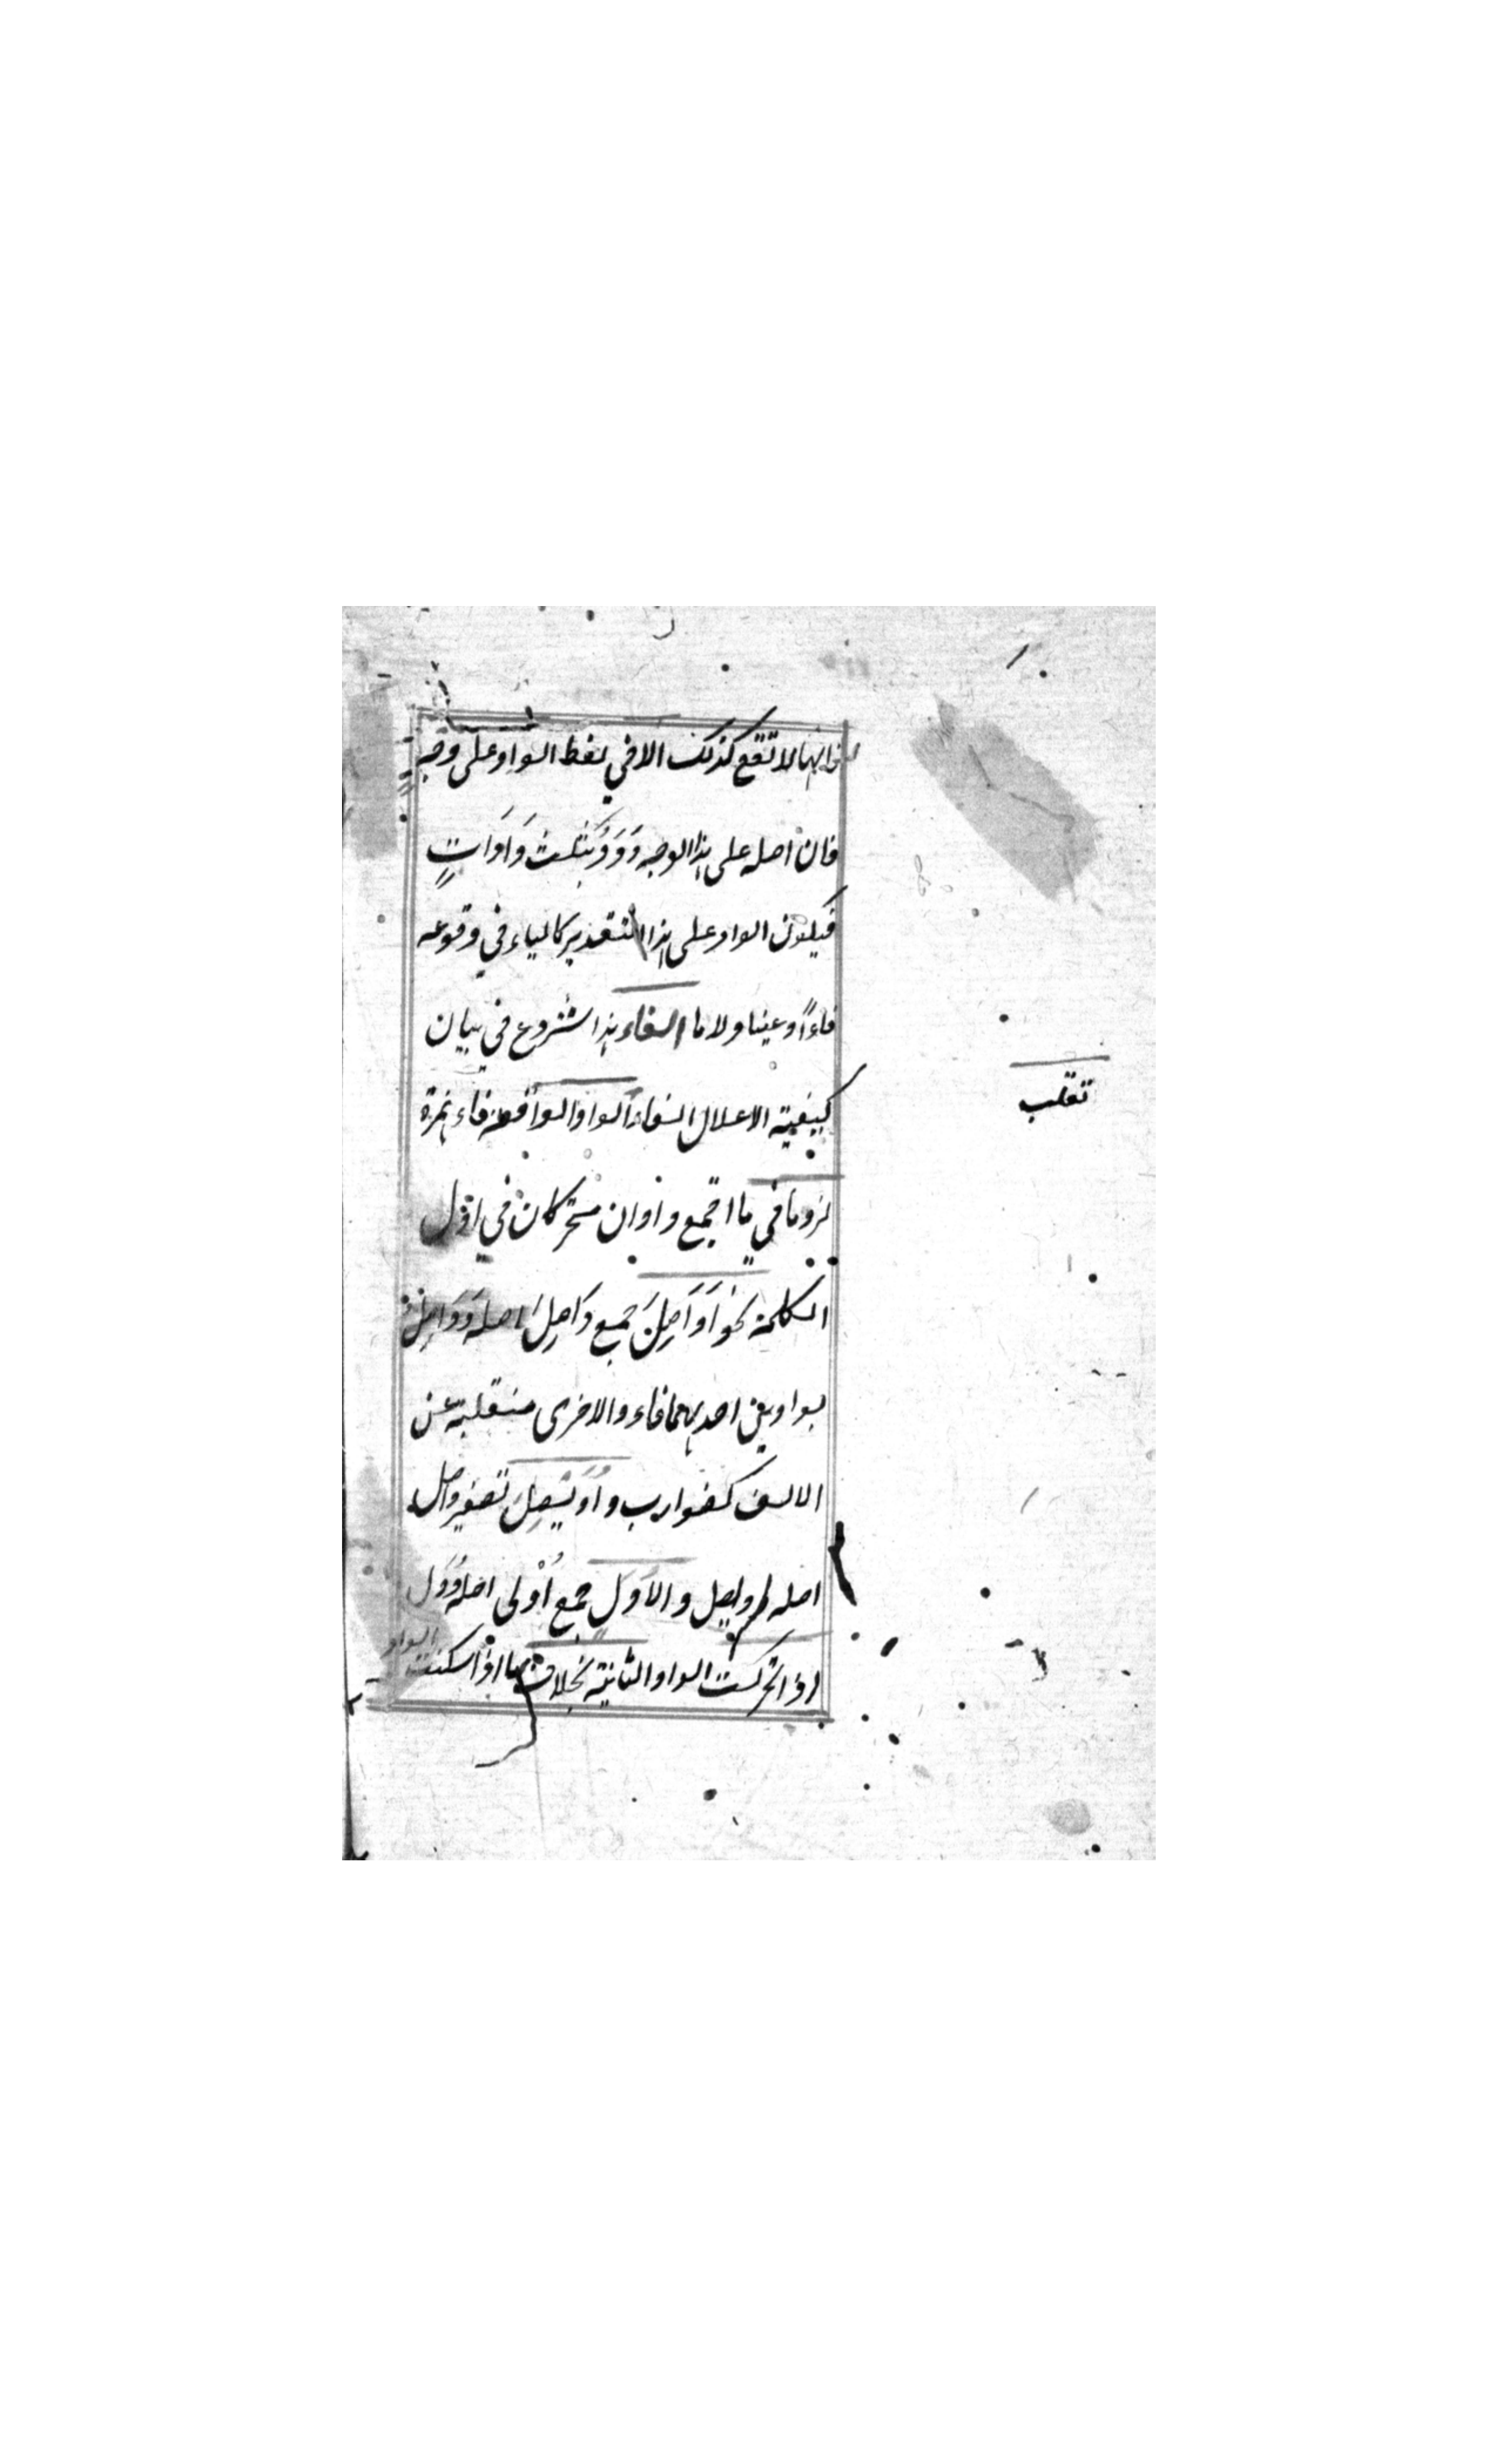 فانها لا تقع كذلك الا في لفظ الواو على وجه
فان اصله على هذا الوجه وَوَوٌ بثلث وَاوَاتٍ
فيكون الواو على هذا التقدير كالياء في وقوعه
فاءً وعينا ولاما الفاء هذا شروع في بيان
كيفية الاعلال الفاء الواو الواقعة فاء همزة
تقلب
لزوما في ما اجتمع واوان متحركان في اول
الكلمة نحو اَوَاصِلَ جمع وَاصِلَ اصله وَوَاصِلُ
بواوين احديهما فاء والاخرى منقلبة عن
الالف كضوارب واُوَيْصِلَ تصغير واصل
اصله وويصل والاُوَلِ جمع اُوْلى اصله وُوَل
اذا تحركت الواو الثانية بخلاف ما اذا سكنت
الواو